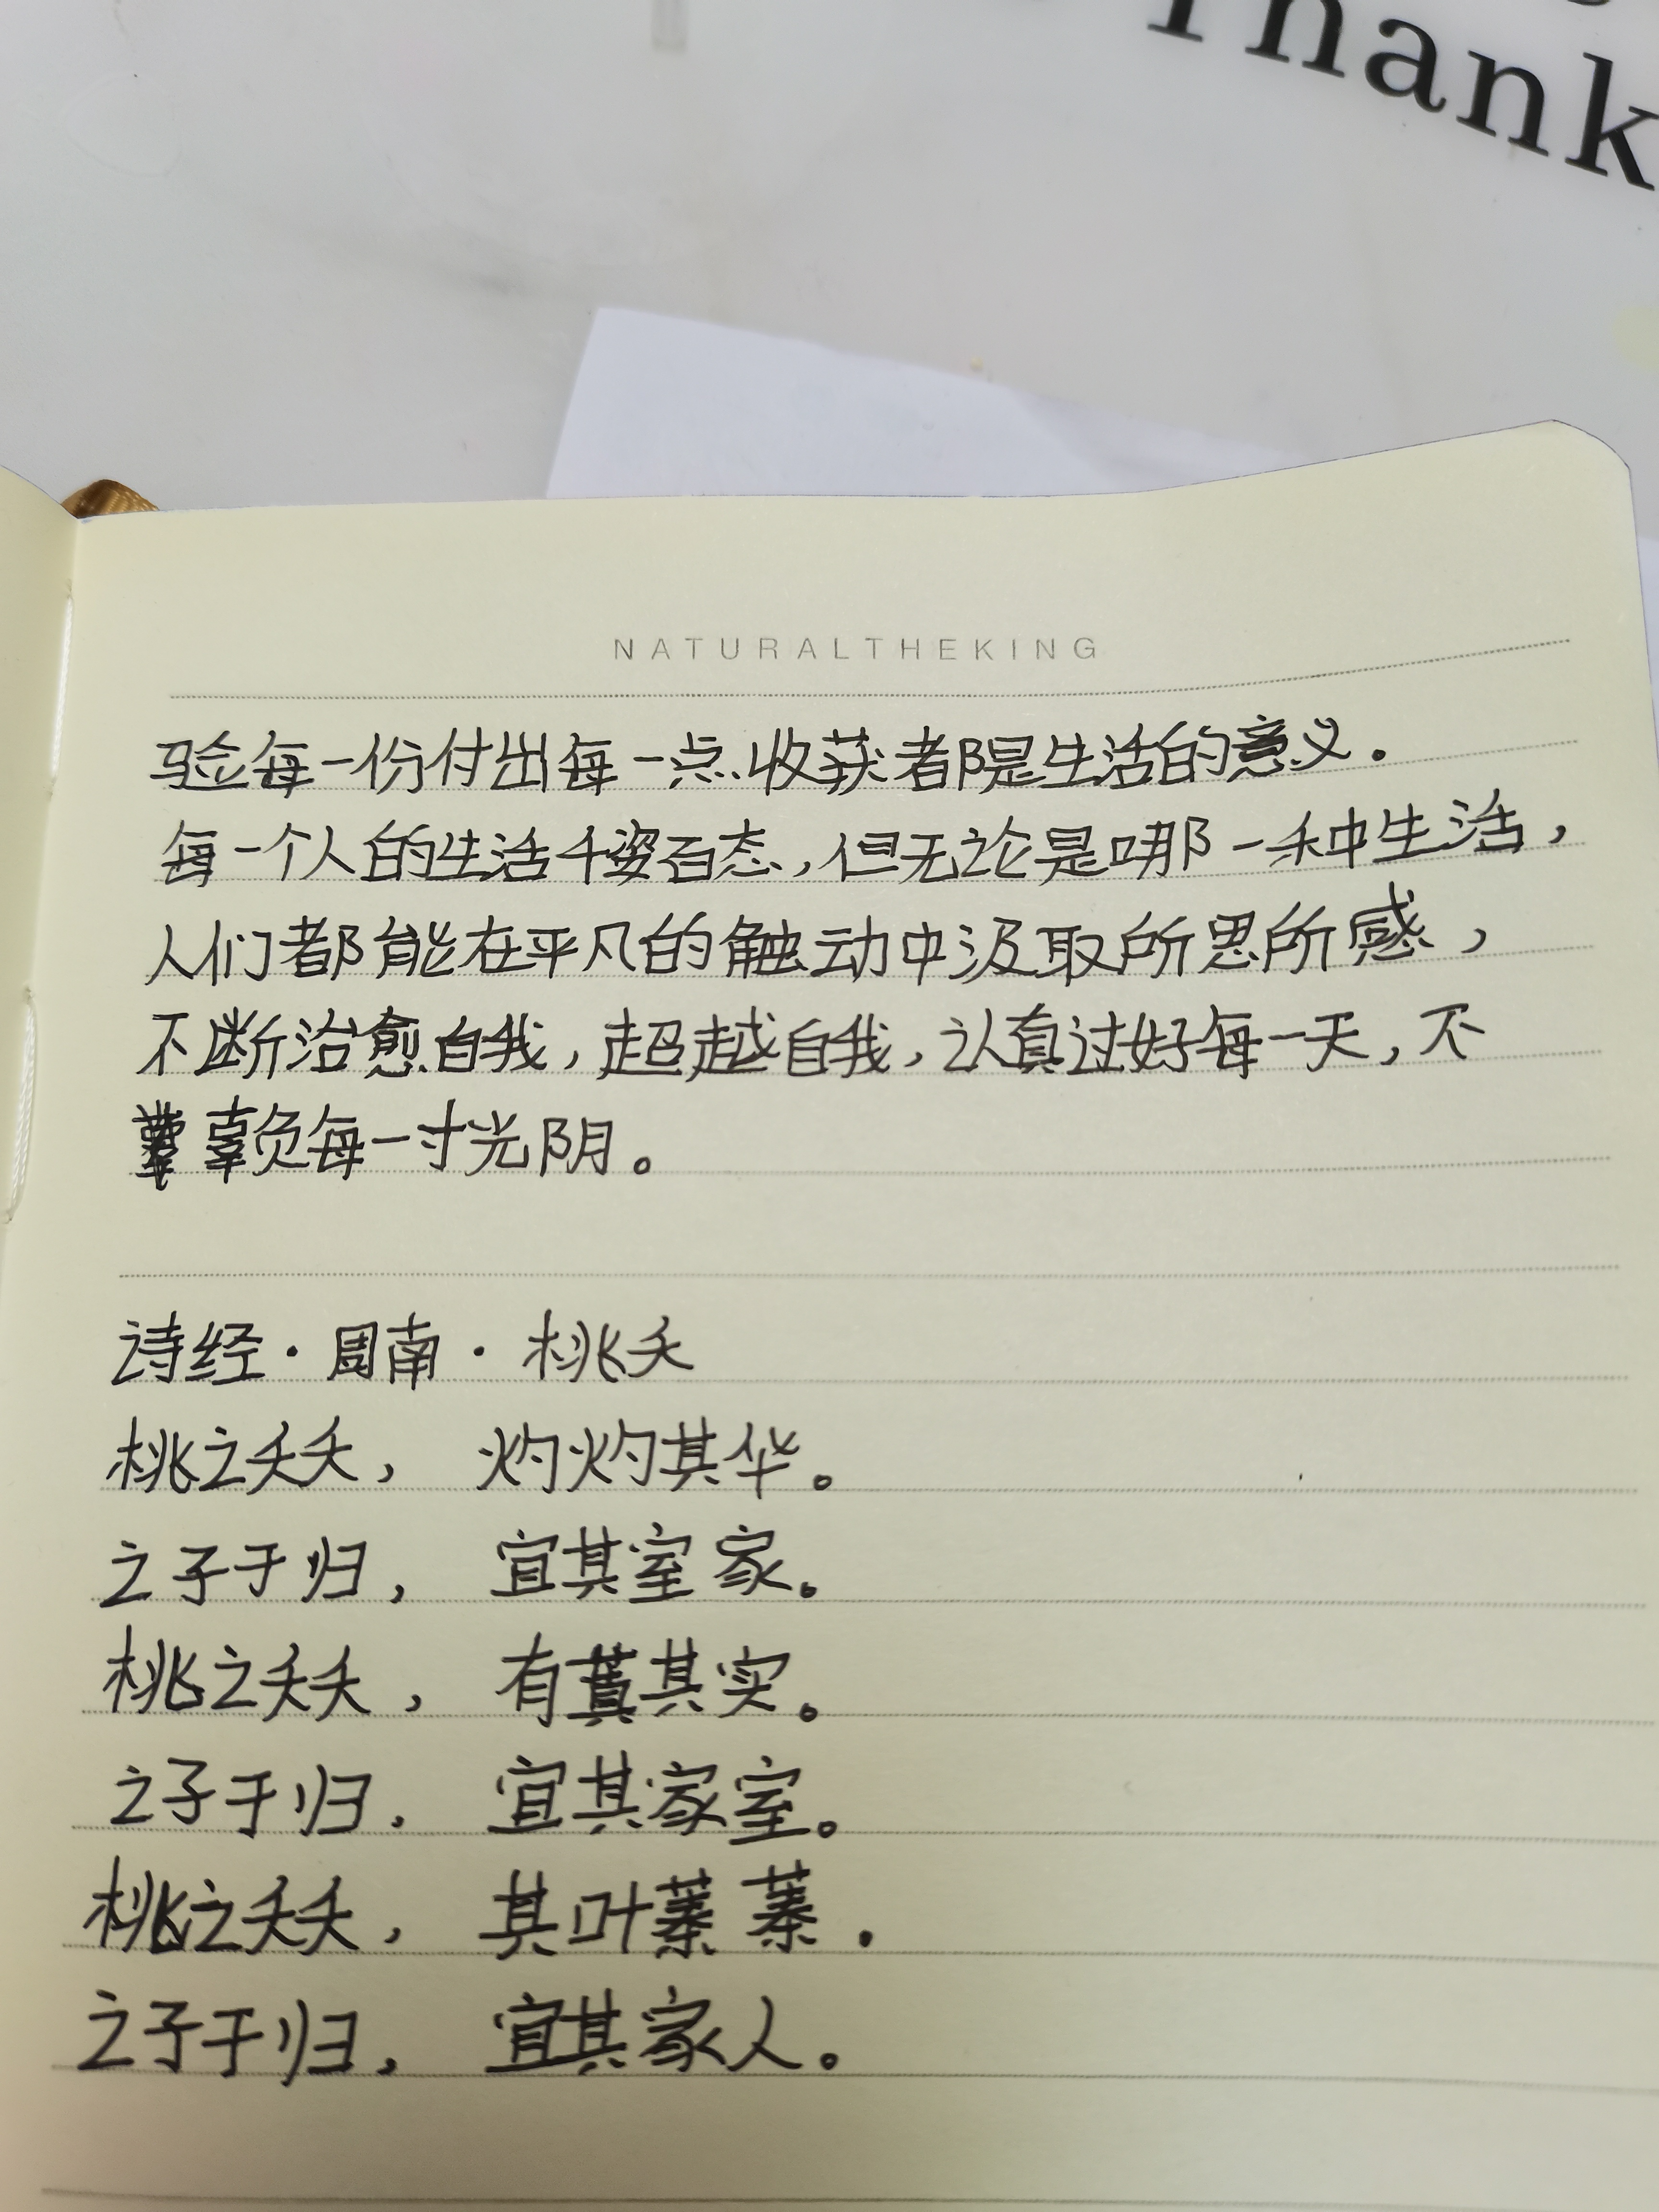 Thank
NATURALTHEKING
验每一份付出每一点收获者都是生活的意义.
每一个人的生活千姿百态,但无论是哪一种生活,
人们都能在平凡的触动中汲取所思所感,
不断治愈自我,超越自我,认真过好每一天,不
辜负每一寸光阴。
诗经·周南·桃夭
桃之夭夭, 灼灼其华。
之子于归, 宜其室家。
桃之夭夭, 有蕡其实。
之子于归, 宜其家室。
桃之夭夭, 其叶蓁蓁.
之子于归, 宜其家人。